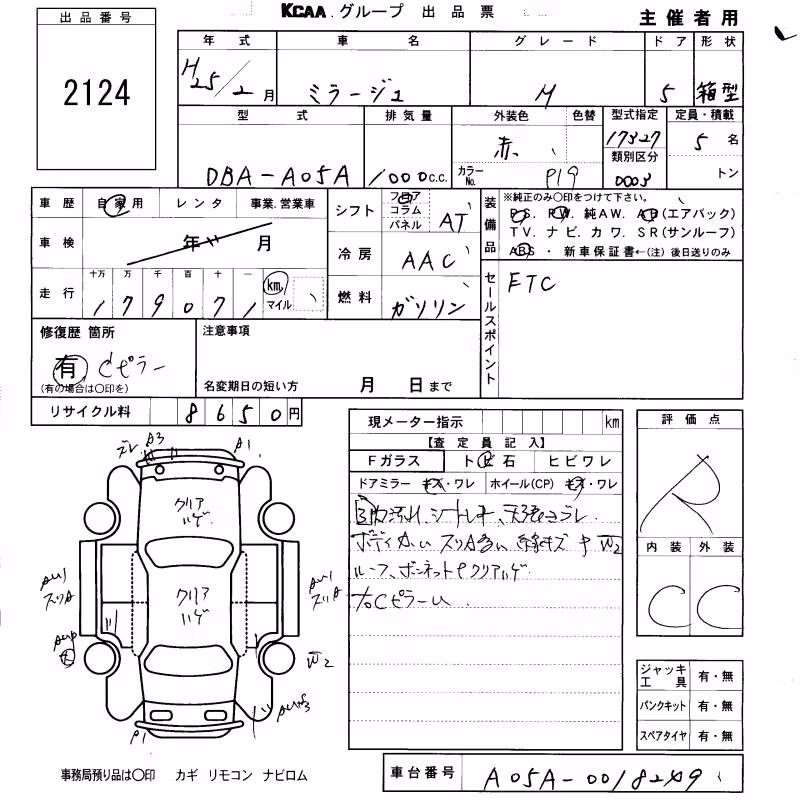 KCAA グループ 出品票
主催者用
出品番号
2124
年式 車名 グレード ドア 形状
H25/2月 ミラージュ M 5 箱型
型式 排気量 外装色 色替 型式指定 定員・積載
DBA-A05A 1000c.c. 赤 カラーNo. P19 17327 5名
類別区分 0003 トン
車歴 自家用 レンタ 事業.営業車
車検 年 月
走行 十万 万 千 百 十 一
179071 km マイル
シフト フロア コラム パネル AT
冷房 AAC
燃料 ガソリン
装備品 ※純正のみ〇印をつけて下さい。
P.S. P.W. 純AW. AB(エアバック)
TV. ナビ. カワ. SR(サンルーフ)
ABS・新車保証書←(注)後日送りのみ
セールスポイント ETC
修復歴 箇所
有 Cピラー
(有の場合は〇印を)
注意事項
名変期日の短い方 月 日まで
リサイクル料 8650円
現メーター指示 km
【査定員記入】
Fガラス トビ石 ヒビワレ
ドアミラー キズ・ワレ ホイール(CP) キズ・ワレ
ルーフ、ボンネット クリアハゲ
右CピラーU
評価点
R
内装 外装
C C
ジャッキ工具 有・無
パンクキット 有・無
スペアタイヤ 有・無
A3 A1
クリアハゲ
クリアハゲ
スリA
スリA
W2
P1
事務局預り品は〇印 カギ リモコン ナビロム
車台番号 A05A-0018249